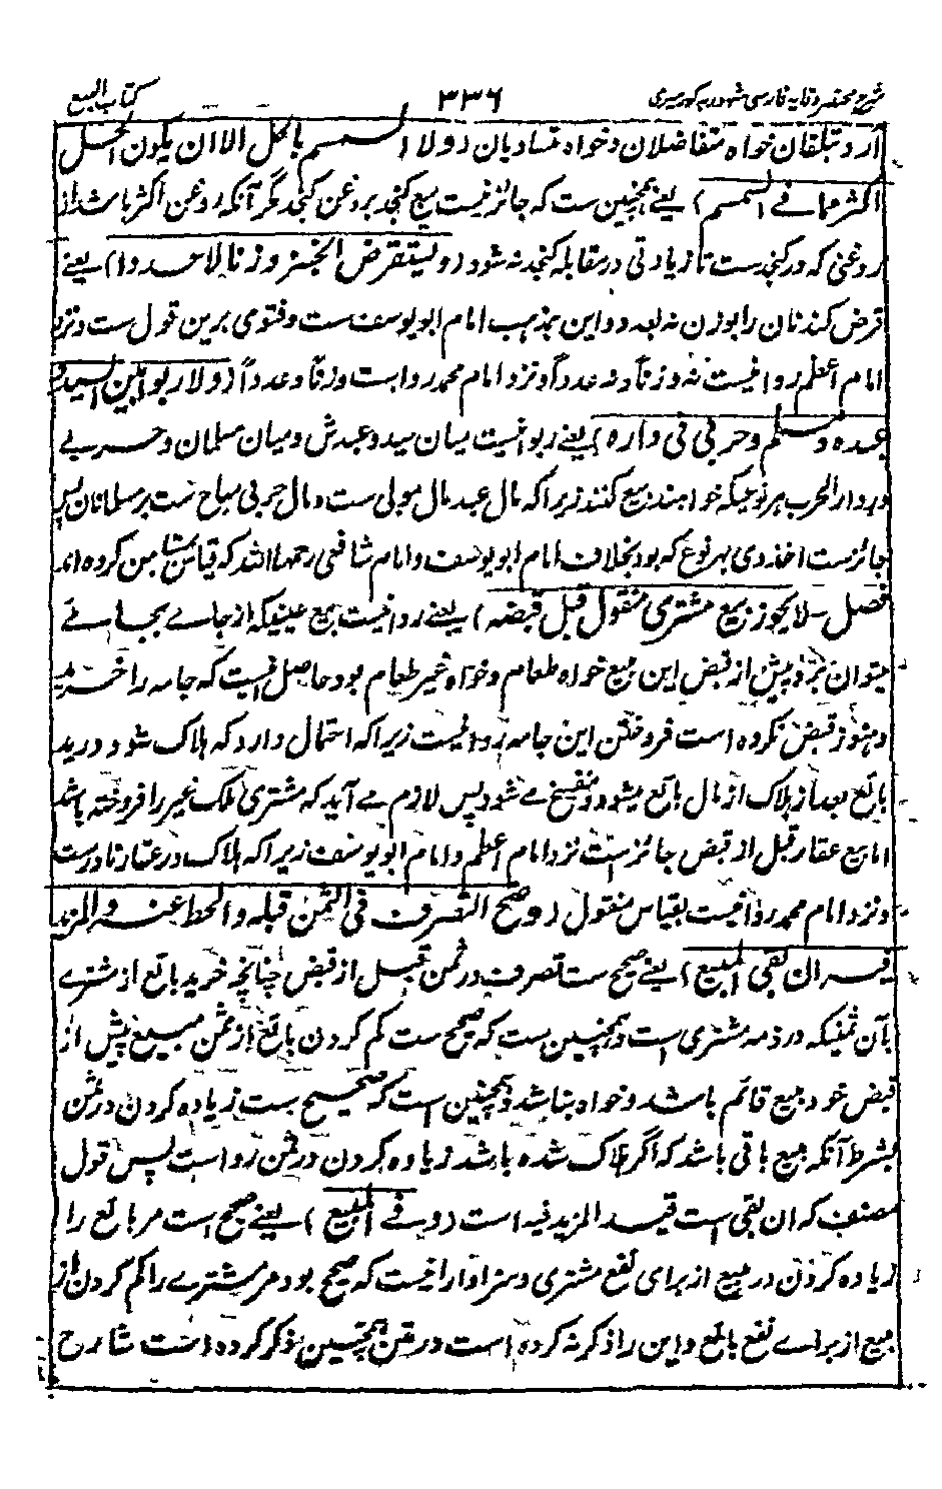 شرح مختصر وقایه فارسی مشهور به کور میری ۳۳۶ کتاب البیع
آرد تبلقان خواه متفاضلان و خواه متساویان (ولا السمسم بالحل الا ان یکون الحل
اکثر مما فے السمسم) یعنے همچنین ست که جائز نیست بیع کنجد بروغن کنجد مگر آنکه روغن اکثر باشد از
روغنی که در کنجدست تا زیادتی در مقابله کنجد نه شود (ویستقرض الخبز وزنا لا عددا) یعنے
قرض کند نان را بوزن نه بعدد و این بمذهب امام ابو یوسف ست و فتوی برین قول ست و نزد
امام اعظم روا نیست نه وزناً و نه عدداً و نزد امام محمد رواست وزناً و عدداً (ولا ربوا بین السید و
عبده و مسلم و حربی فی داره) یعنے ربوا نیست میان سید و عبدش و میان مسلمان و حربے
در دار الحرب بهر نوعیکه خواهند بیع کنند زیرا که مال عبد مال مولی ست و مال حربی مباح ست بر مسلمانان پس
جائزست اخذ وی بهر نوع که بود بخلاف امام ابو یوسف و امام شافعی رحمهما الله که قیاس مستامن کرده اند
فصل - لا یجوز بیع مشتری منقول قبل قبضه) یعنے روا نیست بیع عینیکه از جاے بجاے
میتوان برد پیش از قبض این مبیع خواه طعام و خواه غیر طعام بود حاصل نیست که جامه را خرید
و هنوز قبض نکرده است فروختن این جامه روا نیست زیرا که احتمال دارد که هلاک شود در ید
بائع بعد از هلاک از مال بائع میشود و منفسخ مے شود پس لازم مے آید که مشتری ملک غیر را فروخته باشد
اما بیع عقار قبل از قبض جائز ست نزد امام اعظم و امام ابو یوسف زیرا که هلاک در عقار نادرست
و نزد امام محمد روا نیست بقیاس منقول (وصح التصرف فی الثمن قبله والحط عنه والمزید
فیه ان بقی المبیع) یعنے صحیح ست تصرف در ثمن قبل از قبض چنانچه خرید بائع از مشترے
بآن ثمنیکه در ذمه مشتری است و همچنین ست که صحیح ست کم کردن بائع از ثمن مبیع پیش از
قبض خود مبیع قائم باشد و خواه نباشد و همچنین است که صحیح ست زیاده کردن در ثمن
بشرط آنکه مبیع باقی باشد که اگر هلاک شده باشد زیاده کردن در ثمن روا ست پس قول
مصنف که ان بقی است قید المزید فیه است (وفے المبیع) یعنے صحیح است مر بائع را
زیاده کردن در مبیع از برای نفع مشتری و سزاوار نیست که صحیح بود مر مشترے را کم کردن از
مبیع از براے نفع بائع و این را ذکر نه کرده است در متن همچنین ذکر کرده است شارح